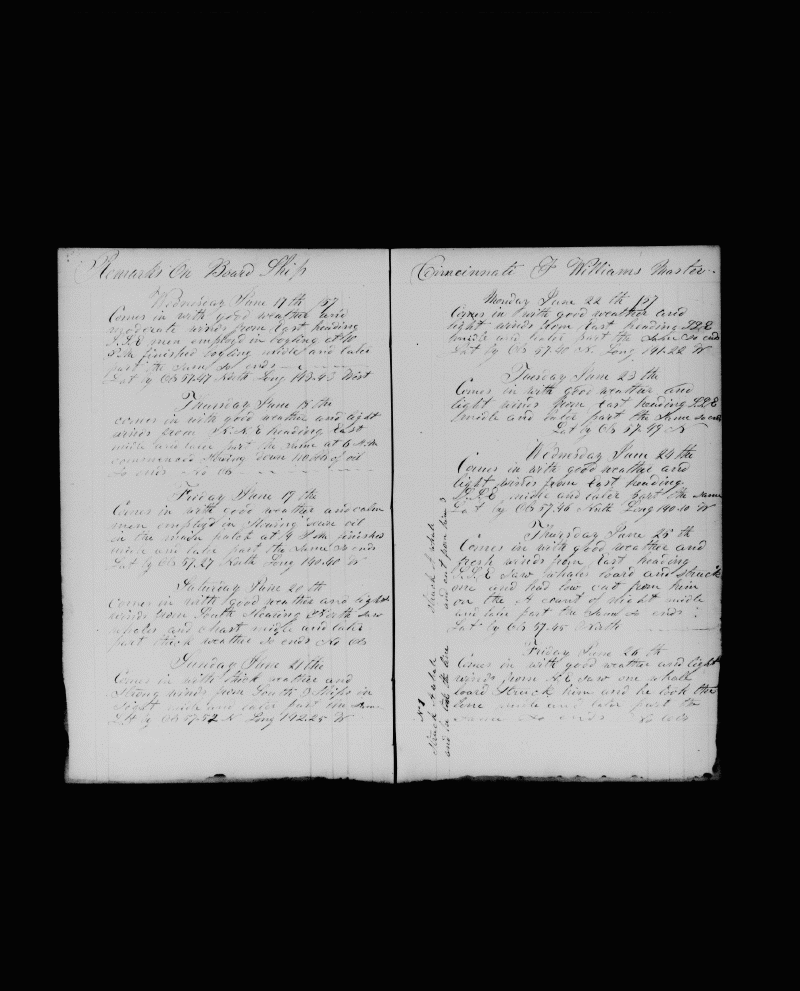 Remarks On Board Ship
Wednesday June 17th /57
Comes in with good weather and
moderate winds from East heading
S.S.E men employd in boyling at 10
P.M. finished boyling midle and later
part the Same So ends
Lat by Ob 57.47 North Long 143.43 West
Thursday June 18 the
comes in with good weather and light
winds from N.N.E heading East
midle and later part the same at 6 A.M.
commenced Stowing down 110 bls of oil
So ends No Ob
Friday June 19 the
Comes in with good weather and calm
men employd in Stowing down oil
in the main hatch at 9 P.M. finished
midle and later part the Same So ends
Lat by Ob 57.27 North Long 140.40 W
Saturday June 20 th
Comes in with good weather and light
winds from South Stearing North Saw
whales and chast midle and later
part thick weather So ends No Ob
Sunday June 21 the
Comes in with thick weather and
Strong winds from South 3 Ships in
Sight midle and later part the Same
Lat by Ob 57.52 N Long 142.25 W
Cincinnati F Williams Master
Monday June 22 th /57
Comes in with good weather and
light winds from East heading S.S.E
midle and later part the Same So ends
Lat by Ob 57.40 N. Long 141.22 W
Tuesday June 23 the
Comes in with good weather and
light winds from East heading S.S.E
midle and later part the Same So ends
Lat by Ob 57.49 N
Wednesday June 24 the
Comes in with good weather and
light winds from East heading
S.S.E midle and later part the Same
Lat by Ob 57.46 North Long 140.10 W
Thursday June 25 th
Comes in with good weather and
fresh winds from East heading
S.S.E Saw whales loard and Struck
one and had to cut from him
on the A count of midle
and later part the Same So ends
Lat by Ob 57.45 North
Friday June 26 th
Comes in with good weather and light
winds from N.E Saw one whale
loard Struck him and he took the
line midle and later part the
Same So ends No Obs
Struck A whale
and cut from him
No 1
Struck a whale
and he took the line